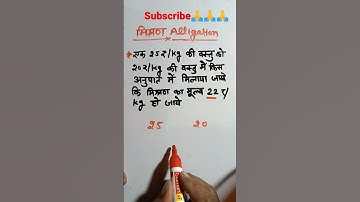 Subscribe🙏🙏🙏
मिश्रण Alligation
* एक 25₹/kg की वस्तु को
20₹/kg की वस्तु में किस
अनुपात में मिलाया जाये
कि मिश्रण का मूल्य 22₹/
kg हो जाये
25 20